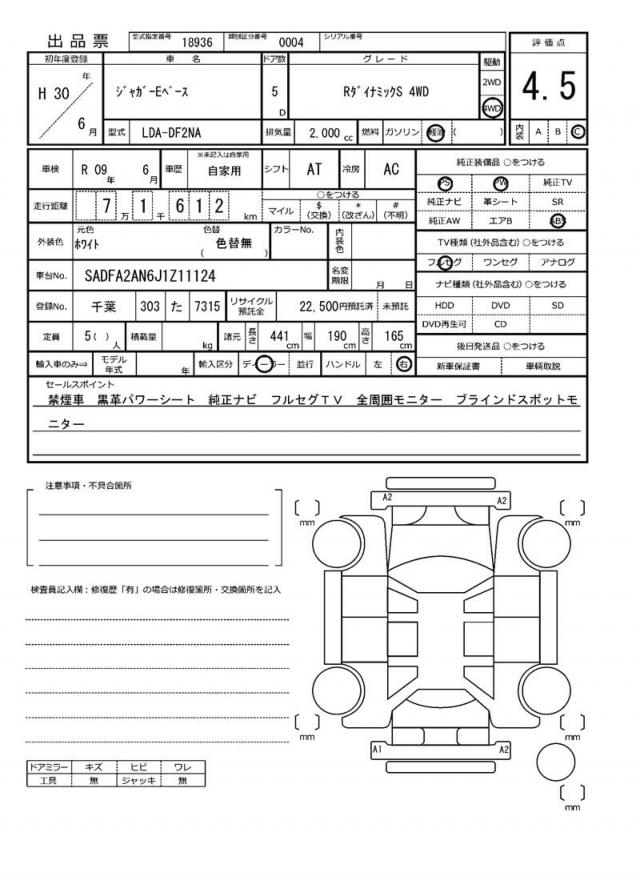 出品票 型式指定番号 18936 類別区分番号 0004 シリアル番号
初年度登録 車 名 ドア数 グレード 駆動 評価点
H 30 年 6 月 ジャガーEペース 5 D RダイナミックS 4WD 2WD 4WD 4.5
型式 LDA-DF2NA 排気量 2,000 cc 燃料 ガソリン 軽油 ( ) 内装 A B C
車検 R 09 年 6 月 車歴 ※未記入は自家用 自家用 シフト AT 冷房 AC
走行距離 7 万 1 千 6 1 2 km ○をつける マイル $ (交換) * (改ざん) # (不明)
外装色 元色 ホワイト 色替 ( 色替無 ) カラーNo. 内装色
車台No. SADFA2AN6J1Z11124 名変期限 月 日
登録No. 千葉 303 た 7315 リサイクル預託金 22,500円預託済 未預託
定員 5( ) 人 積載量 kg 諸元 長さ 441 cm 幅 190 cm 高さ 165 cm
輸入車のみ⇒ モデル年式 年 輸入区分 ディーラー 並行 ハンドル 左 右
純正装備品 ○をつける
PS PW 純正TV
純正ナビ 革シート SR
純正AW エアB ABS
TV種類 (社外品含む) ○をつける
フルセグ ワンセグ アナログ
ナビ種類 (社外品含む) ○をつける
HDD DVD SD
DVD再生可 CD
後日発送品 ○をつける
新車保証書 車輌取説
セールスポイント
禁煙車 黒革パワーシート 純正ナビ フルセグTV 全周囲モニター ブラインドスポットモ
ニター
注意事項・不具合箇所
検査員記入欄：修復歴「有」の場合は修復箇所・交換箇所を記入
ドアミラー キズ ヒビ ワレ
工具 無 ジャッキ 無
A2 A2
〔 〕 mm 〔 〕 mm
〔 〕 mm 〔 〕 mm
A1 A2
〔 〕 mm